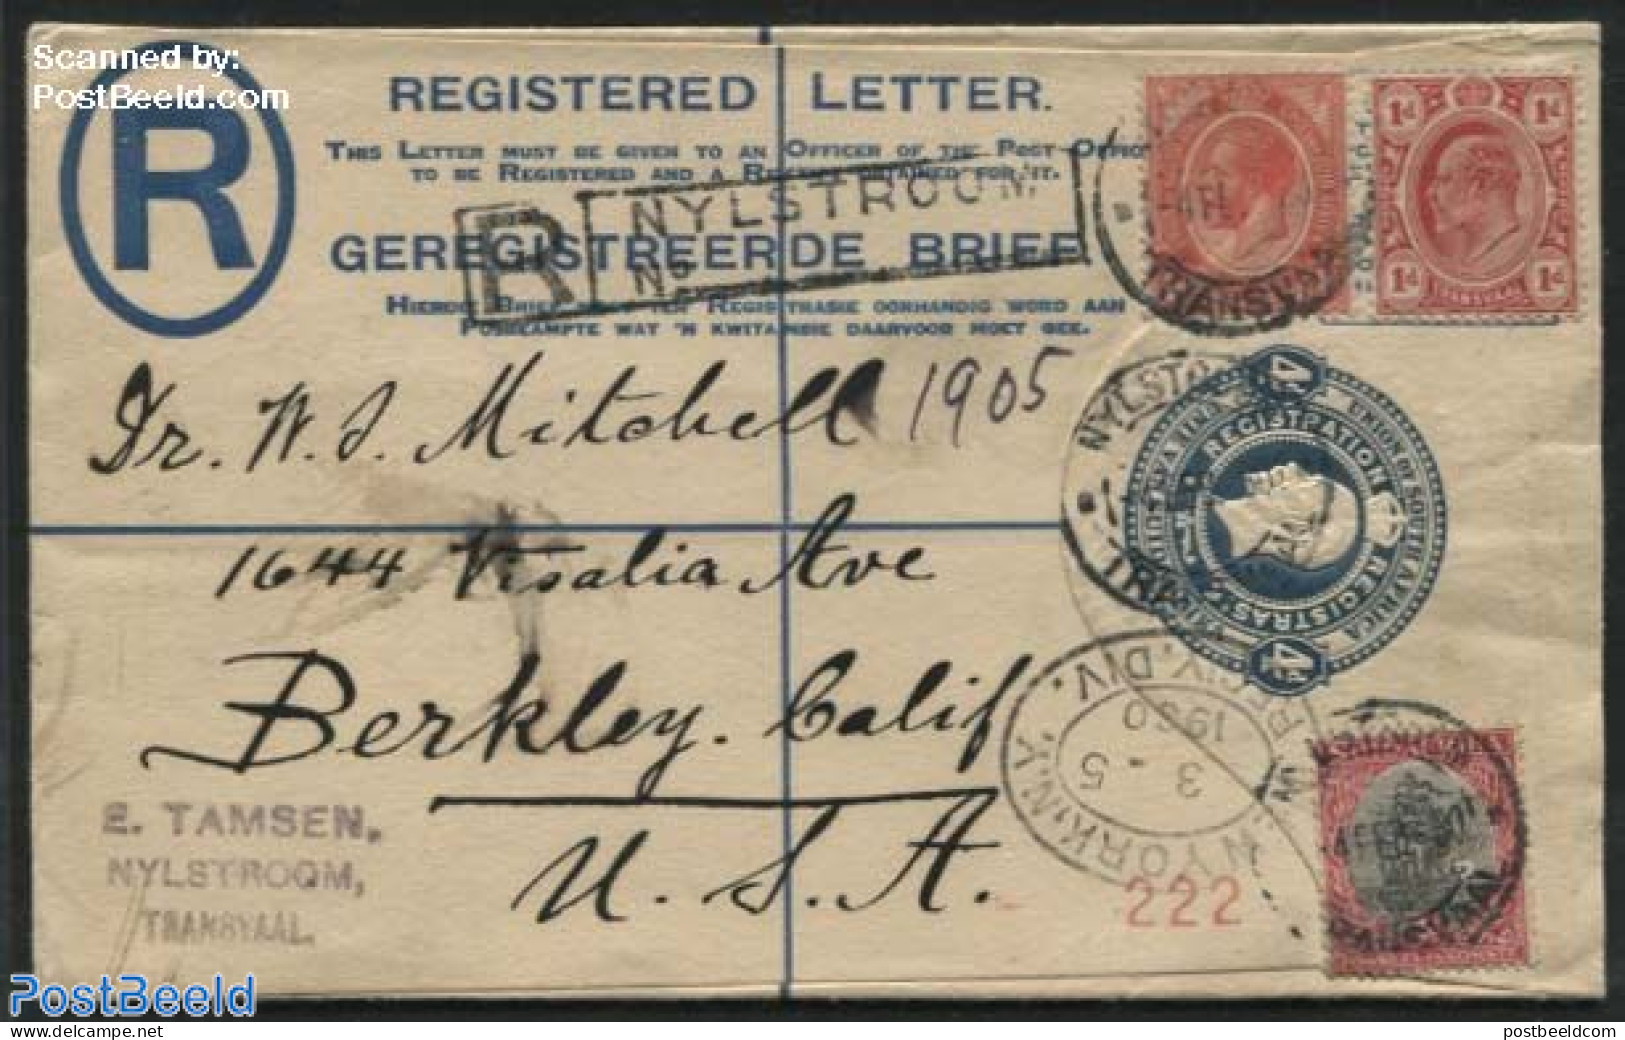 Scanned by:
PostBeeld.com
R
REGISTERED LETTER.
THIS LETTER MUST BE GIVEN TO AN OFFICER OF THE POST OFFICE
TO BE REGISTERED AND A RECEIPT OBTAINED FOR IT.
R NYLSTROOM.
No
GEREGISTREERDE BRIEF
HIERDIE BRIEF MOET TEN REGISTRASIE OORHANDIG WORD AAN
POSBEAMPTE WAT 'N KWITANSIE DAARVOOR MOET GEE.
1d 1d
1d 1d
TRANSVAAL
TRANSVAAL
Dr. W. J. Mitchell 1905
NYLSTR
4d
UNION OF SOUTH AFRICA
REGISTRATION
REGISTRASIE
4d
1644 Visalia Ave
Berkley. Calif
U. S. A.
N. YORK, N.Y.
DIV.
3 - 5
1930
222
TRANSVAAL
E. TAMSEN,
NYLSTROOM,
TRANSVAAL.
PostBeeld
www.postbeeld.com
postbeeldcom